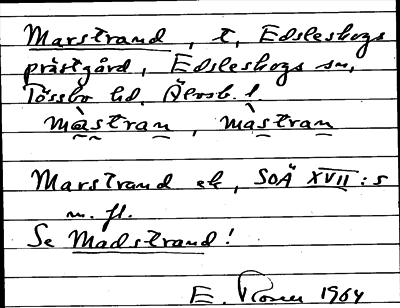 Marstrand, t, Edsleskogs
prästgård, Edsleskogs sn,
Tössbo hd. Älvsb. l
màstran, màstran
Marstrand ek, SOÄ XVII:5
m. fl.
Se Madstrand!
E. 1964